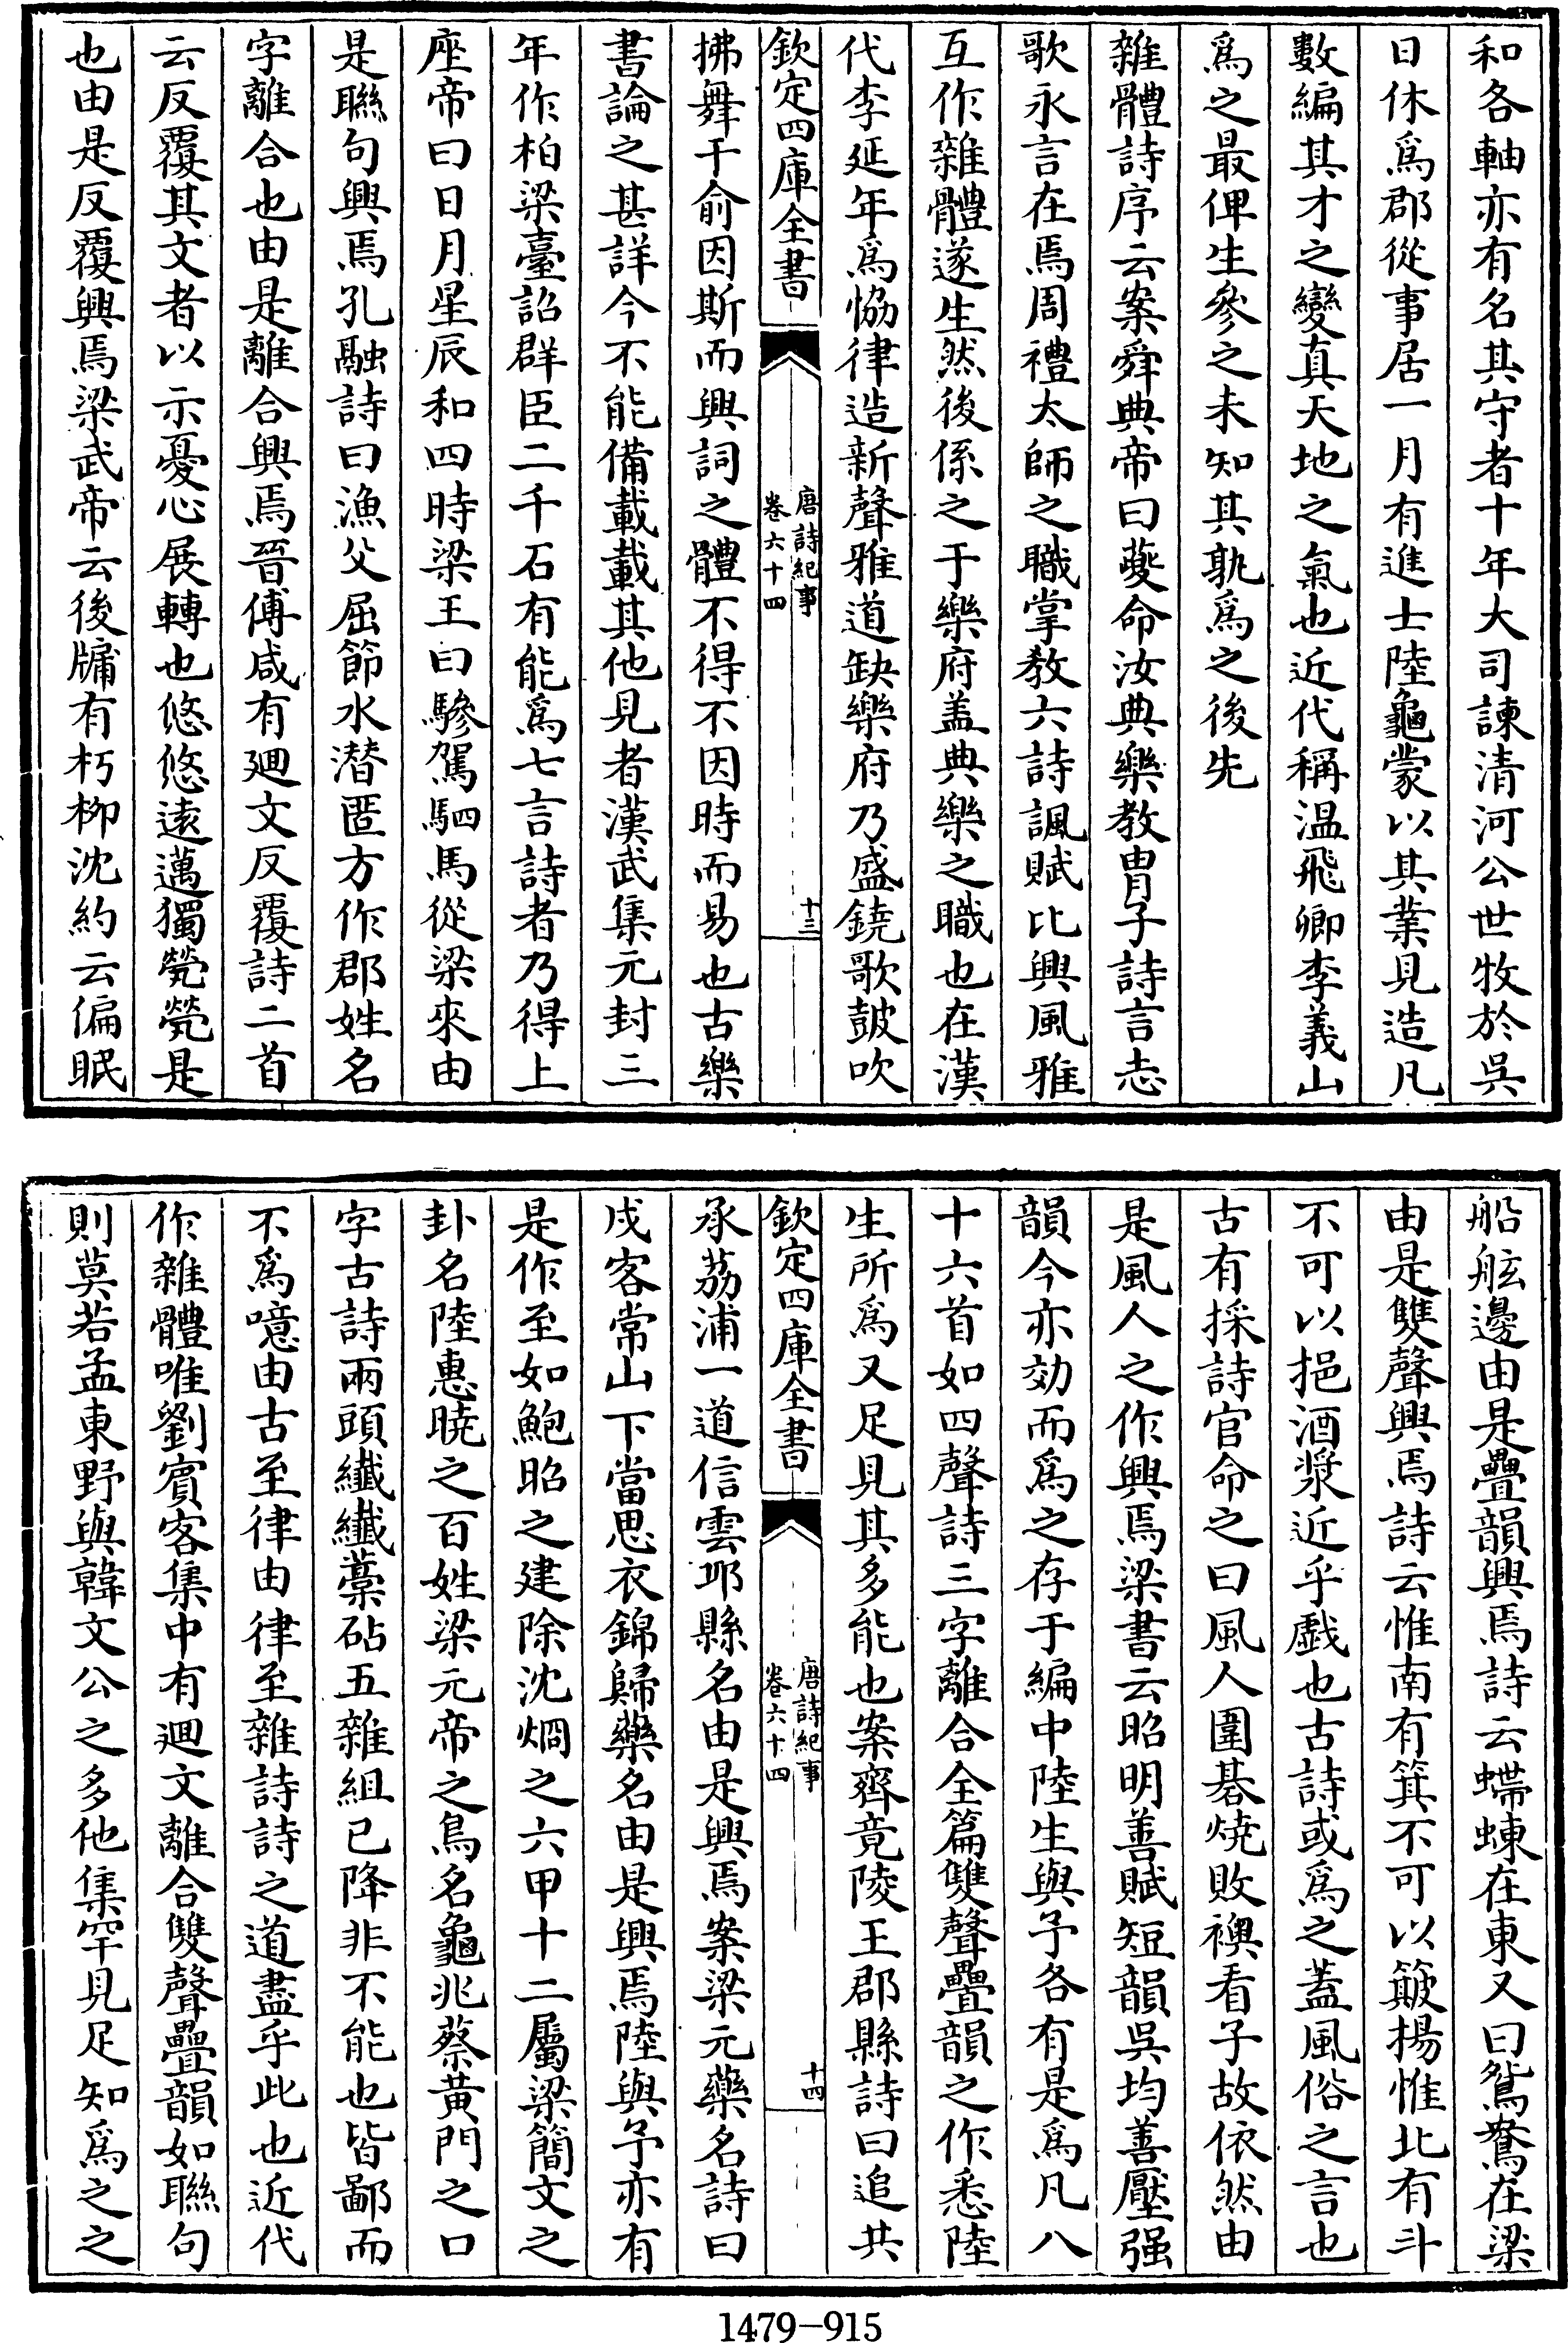 和各軸亦有名其守者十年大司諫清河公世牧於吳
日休爲郡從事居一月有進士陸龜蒙以其業見造凡
數編其才之變真天地之氣也近代稱温飛卿李義山
爲之最俾生參之未知其孰爲之後先
雜體詩序云案舜典帝曰夔命汝典樂教胄子詩言志
歌永言在焉周禮太師之職掌教六詩諷賦比興風雅
互作雜體遂生然後係之于樂府盖典樂之職也在漢
代李延年爲協律造新聲雅道缺樂府乃盛鐃歌鼓吹
欽定四庫全書
唐詩紀事
卷六十四
十三
拂舞干俞因斯而興詞之體不得不因時而易也古樂
書論之甚詳今不能備載載其他見者漢武集元封三
年作柏梁臺詔群臣二千石有能爲七言詩者乃得上
座帝曰日月星辰和四時梁王曰驂駕駟馬從梁來由
是聯句興焉孔融詩曰漁父屈節水潜匿方作郡姓名
字離合也由是離合興焉晉傅咸有廻文反覆詩二首
云反覆其文者以示憂心展轉也悠悠遠邁獨煢煢是
也由是反覆興焉梁武帝云後牖有朽栁沈約云偏眠
船舷邊由是疊韻興焉詩云蝃蝀在東又曰鴛鴦在梁
由是雙聲興焉詩云惟南有箕不可以簸揚惟北有斗
不可以挹酒漿近乎戲也古詩或爲之蓋風俗之言也
古有採詩官命之曰風人圍碁燒敗襖看子故依然由
是風人之作興焉梁書云昭明善賦短韻吳均善壓强
韻今亦効而爲之存于編中陸生與予各有是爲凡八
十六首如四聲詩三字離合全篇雙聲疊韻之作悉陸
生所爲又足見其多能也案齊竟陵王郡縣詩曰追共
欽定四庫全書
唐詩紀事
卷六十四
十四
承荔浦一道信雲邪縣名由是興焉案梁元藥名詩曰
戍客常山下當思衣錦歸藥名由是興焉陸與予亦有
是作至如鮑昭之建除沈烱之六甲十二屬梁簡文之
卦名陸惠曉之百姓梁元帝之鳥名龜兆蔡黃門之口
字古詩兩頭纖纖藁砧五雜組已降非不能也皆鄙而
不爲噫由古至律由律至雜詩詩之道盡乎此也近代
作雜體唯劉賓客集中有廻文離合雙聲疊韻如聯句
則莫若孟東野與韓文公之多他集罕見足知爲之之
1479-915